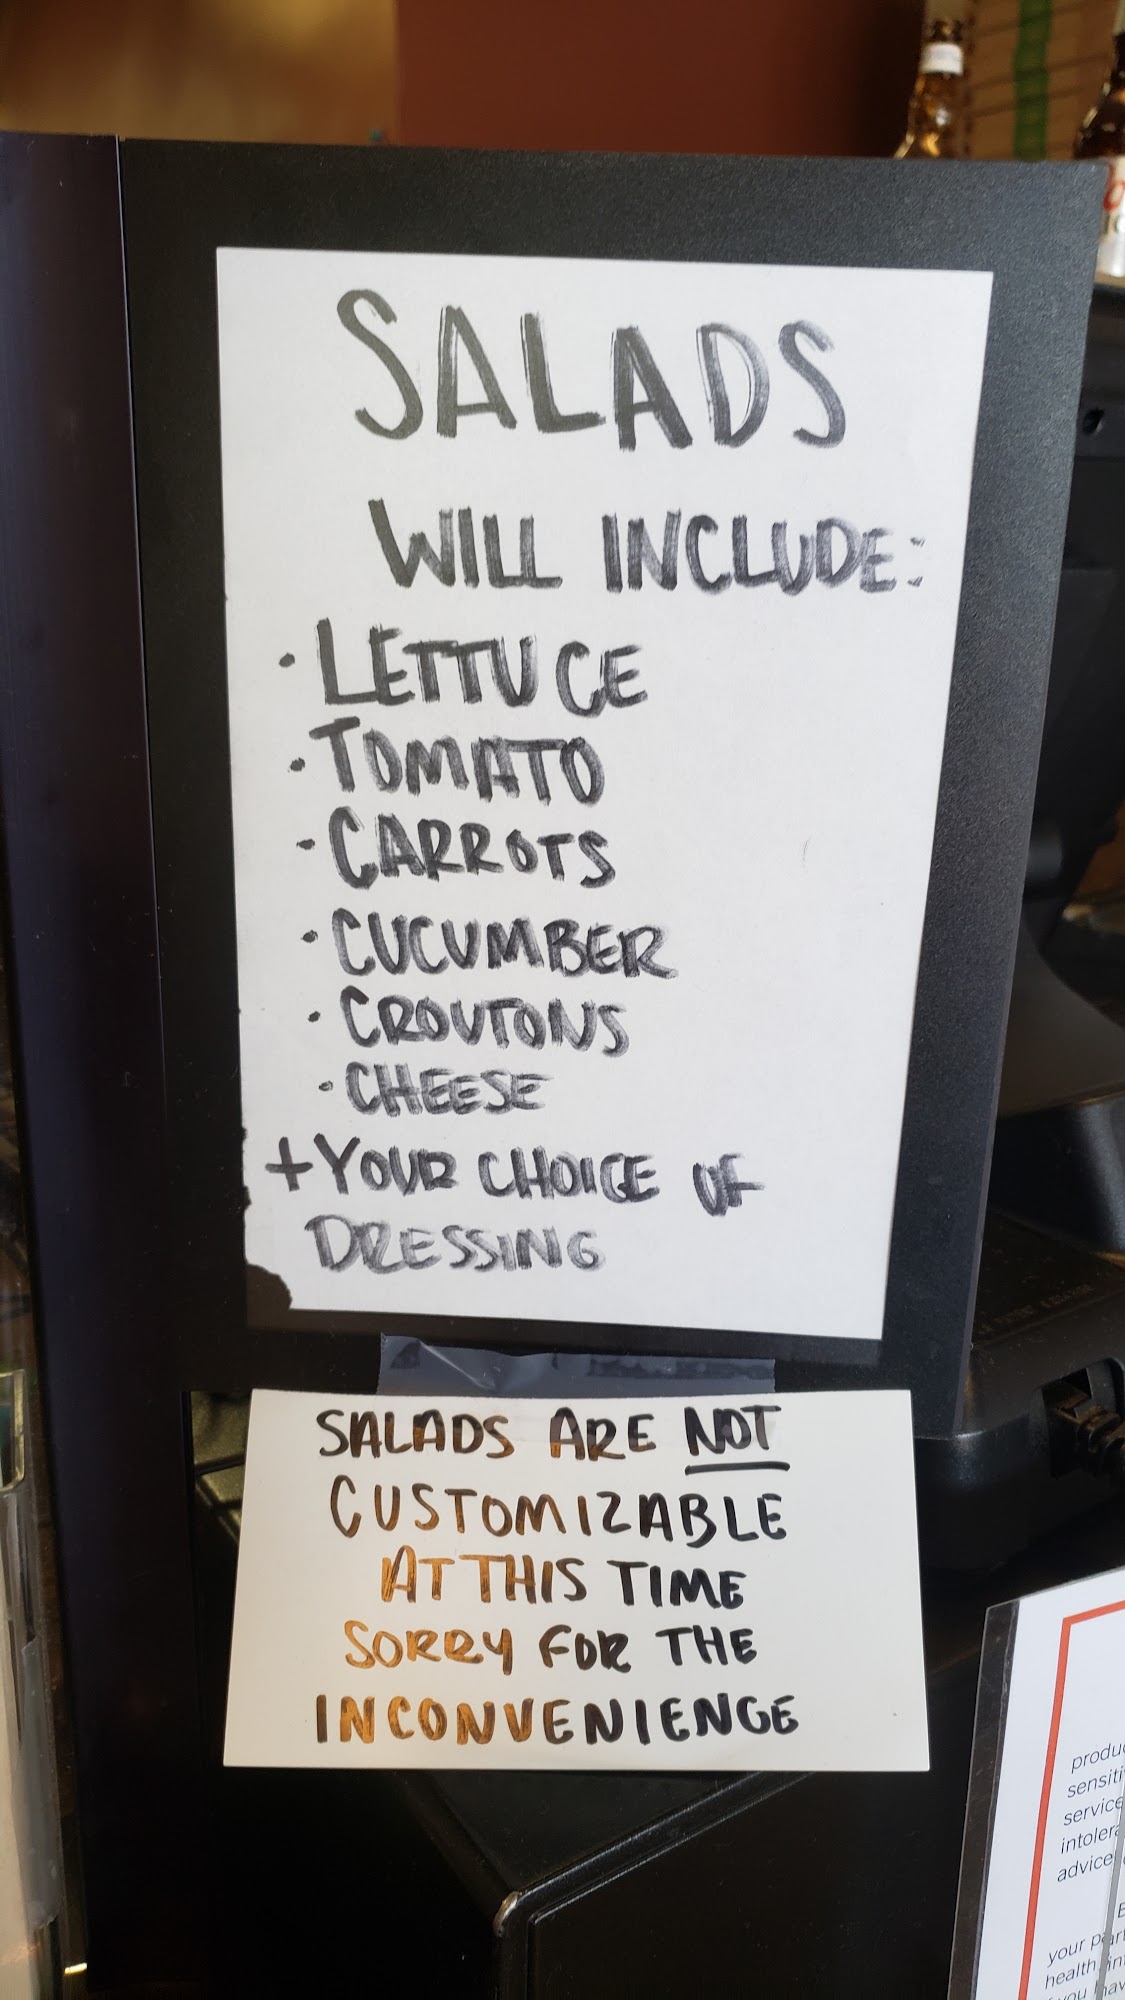 SALADS
WILL INCLUDE:
· LETTUCE
· TOMATO
· CARROTS
· CUCUMBER
· CROUTONS
· CHEESE
+ YOUR CHOICE OF
DRESSING
SALADS ARE NOT
CUSTOMIZABLE
AT THIS TIME
SORRY FOR THE
INCONVENIENCE
service
advice
your
health